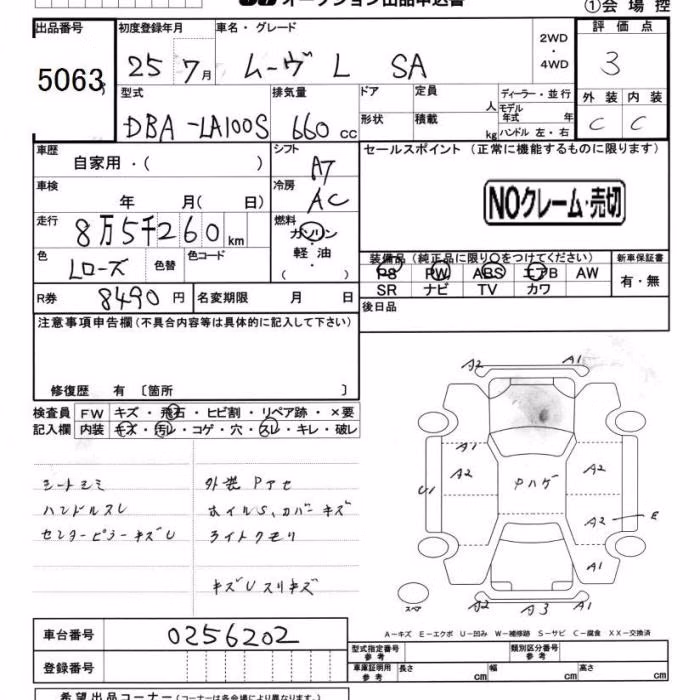 オークション出品申込書
①会場控
出品番号 5063
初度登録年月 25 7月
車名・グレード ムーヴ L SA
2WD・4WD
評価点 3
型式 DBA-LA100S
排気量 660 cc
ドア 定員 人
ディーラー・並行
モデル年式 年
形状 積載 kg
ハンドル 左・右
外装 内装
C C
車歴 自家用・( )
シフト A7
セールスポイント (正常に機能するものに限ります)
車検 年 月( 日)
冷房 AC
NOクレーム・売切
走行 8万5千260 km
燃料 ガソリン 軽油 ・( )
色 Lローズ 色替 色コード
装備品 (純正品に限り○をつけてください)
新車保証書
PS PW ABS エアB AW
有・無
SR ナビ TV カワ
R券 8490円 名変期限 月 日
後日品
注意事項申告欄 (不具合内容等は具体的に記入して下さい)
修復歴 有 〔箇所 〕
検査員 FW キズ・飛石・ヒビ割・リペア跡・×要
記入欄 内装 キズ・汚レ・コゲ・穴・スレ・キレ・破レ
シートシミ
ハンドルスレ
センターピラーキズU
外装 Pアセ
ホイルS、カバーキズ
ライトクモリ
キズUスリキズ
A2 A1
A1
A2 Pハゲ A2
U1
A2 E
A1
スペア
A2 A3 A1
A-キズ E-エクボ U-凹み W-補修跡 S-サビ C-腐食 XX-交換済
車台番号 0256202
登録番号
型式指定番号 参考
類別区分番号 参考
車庫証明用 参考 長さ cm 幅 cm 高さ cm
希望出品コーナー (コーナーは各会場により異なります)